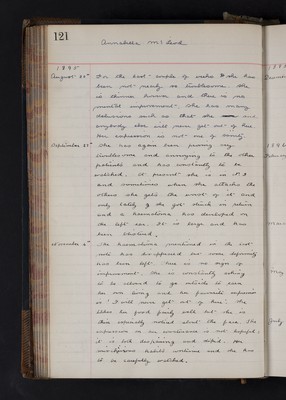 121
Annabella McLeod
1895
August 22nd For the last couple of weeks she has
been not nearly so troublesome. She
is thinner however and there is no
mental improvement. She has many
delusions such as that she and
anybody else will never get out of here.
Her expression is not one of sanity.
September 23rd She has again been proving very
troublesome and annoying to the other
patients and has constantly to be
watched. At present she is in
and sometimes when she attacks the
others she gets the worst of it and
only lately she got struck in return
and a haematoma has developed on
the left ear. It is large and has
been blistered.
November The haematoma mentioned in the last
note has disappeared but some deformity
has been left. There is no sign of
improvement. She is constantly asking
to be allowed to go outside to see
her own being and her favourite expression
is "I will never get out of here". She
takes her food fairly well but she is
thin especially noticed about the face. The
expression on her countenance is not hopeful;
it is both despairing and dull. Her
mischievous habits continue and she has
to be carefully watched.
1896
March
May
July